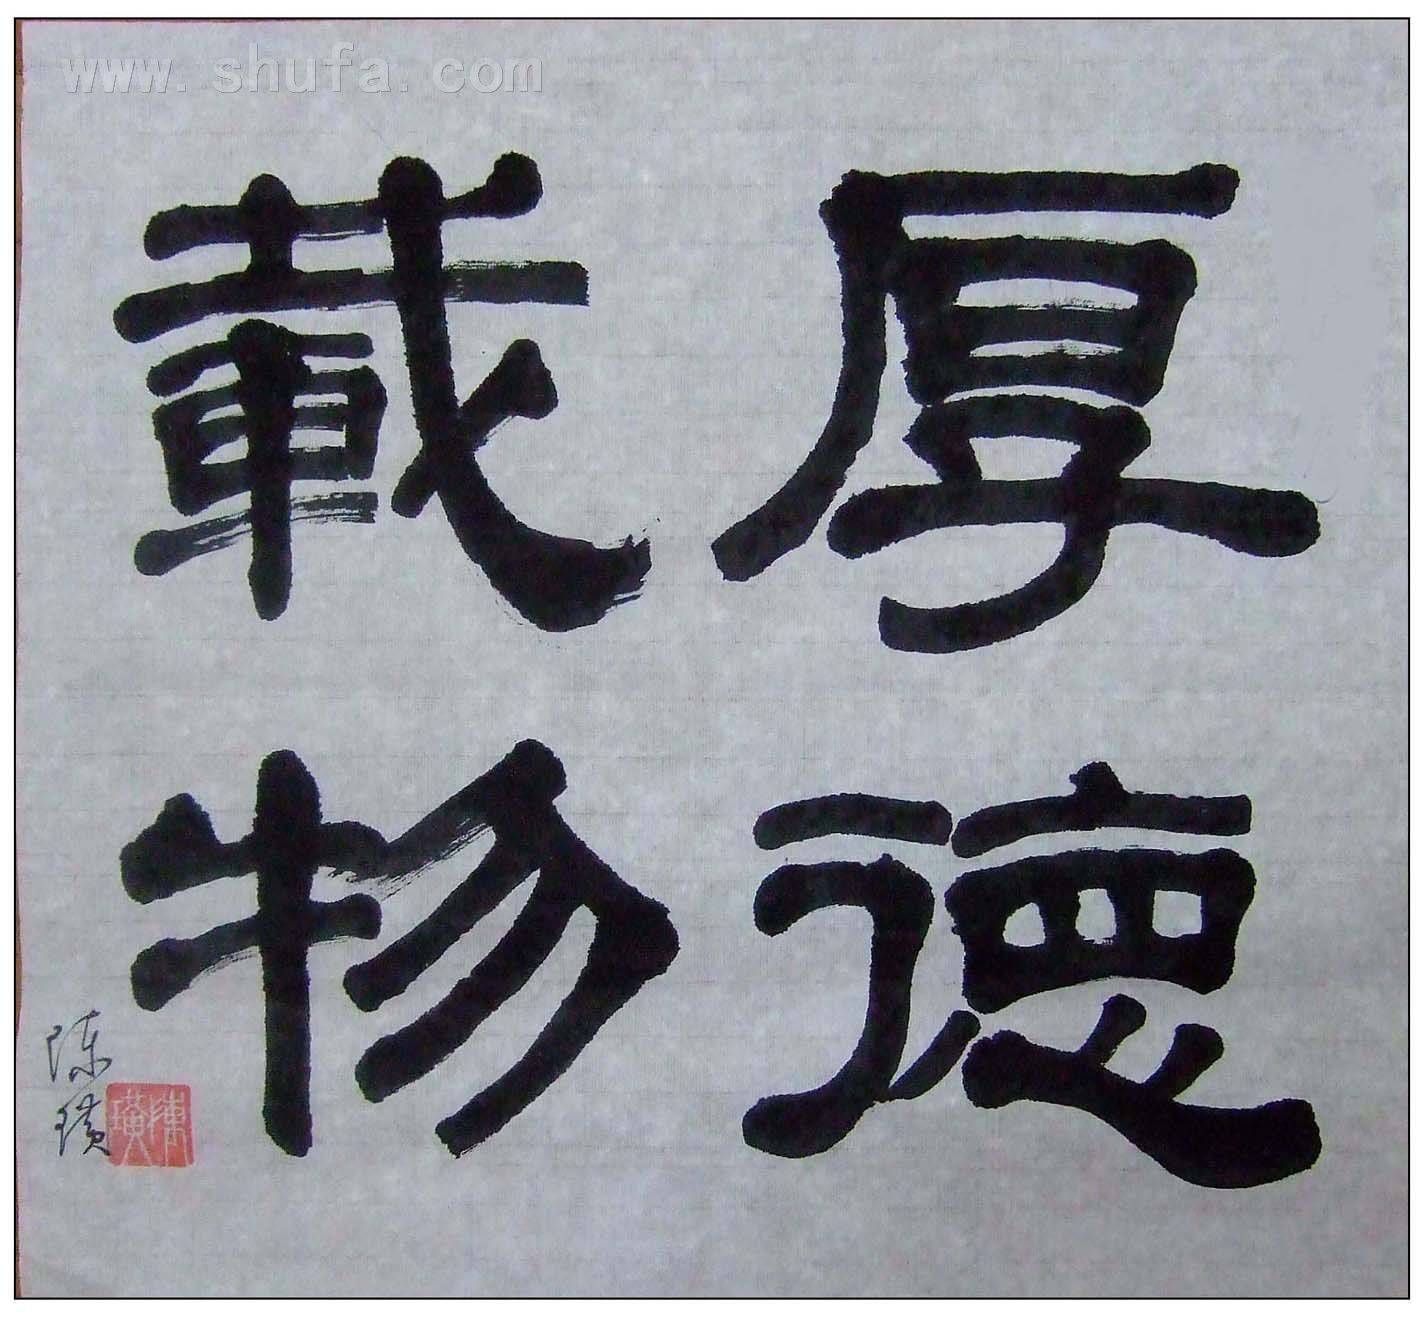 www.shufa.com
厚德
載物
陈璜